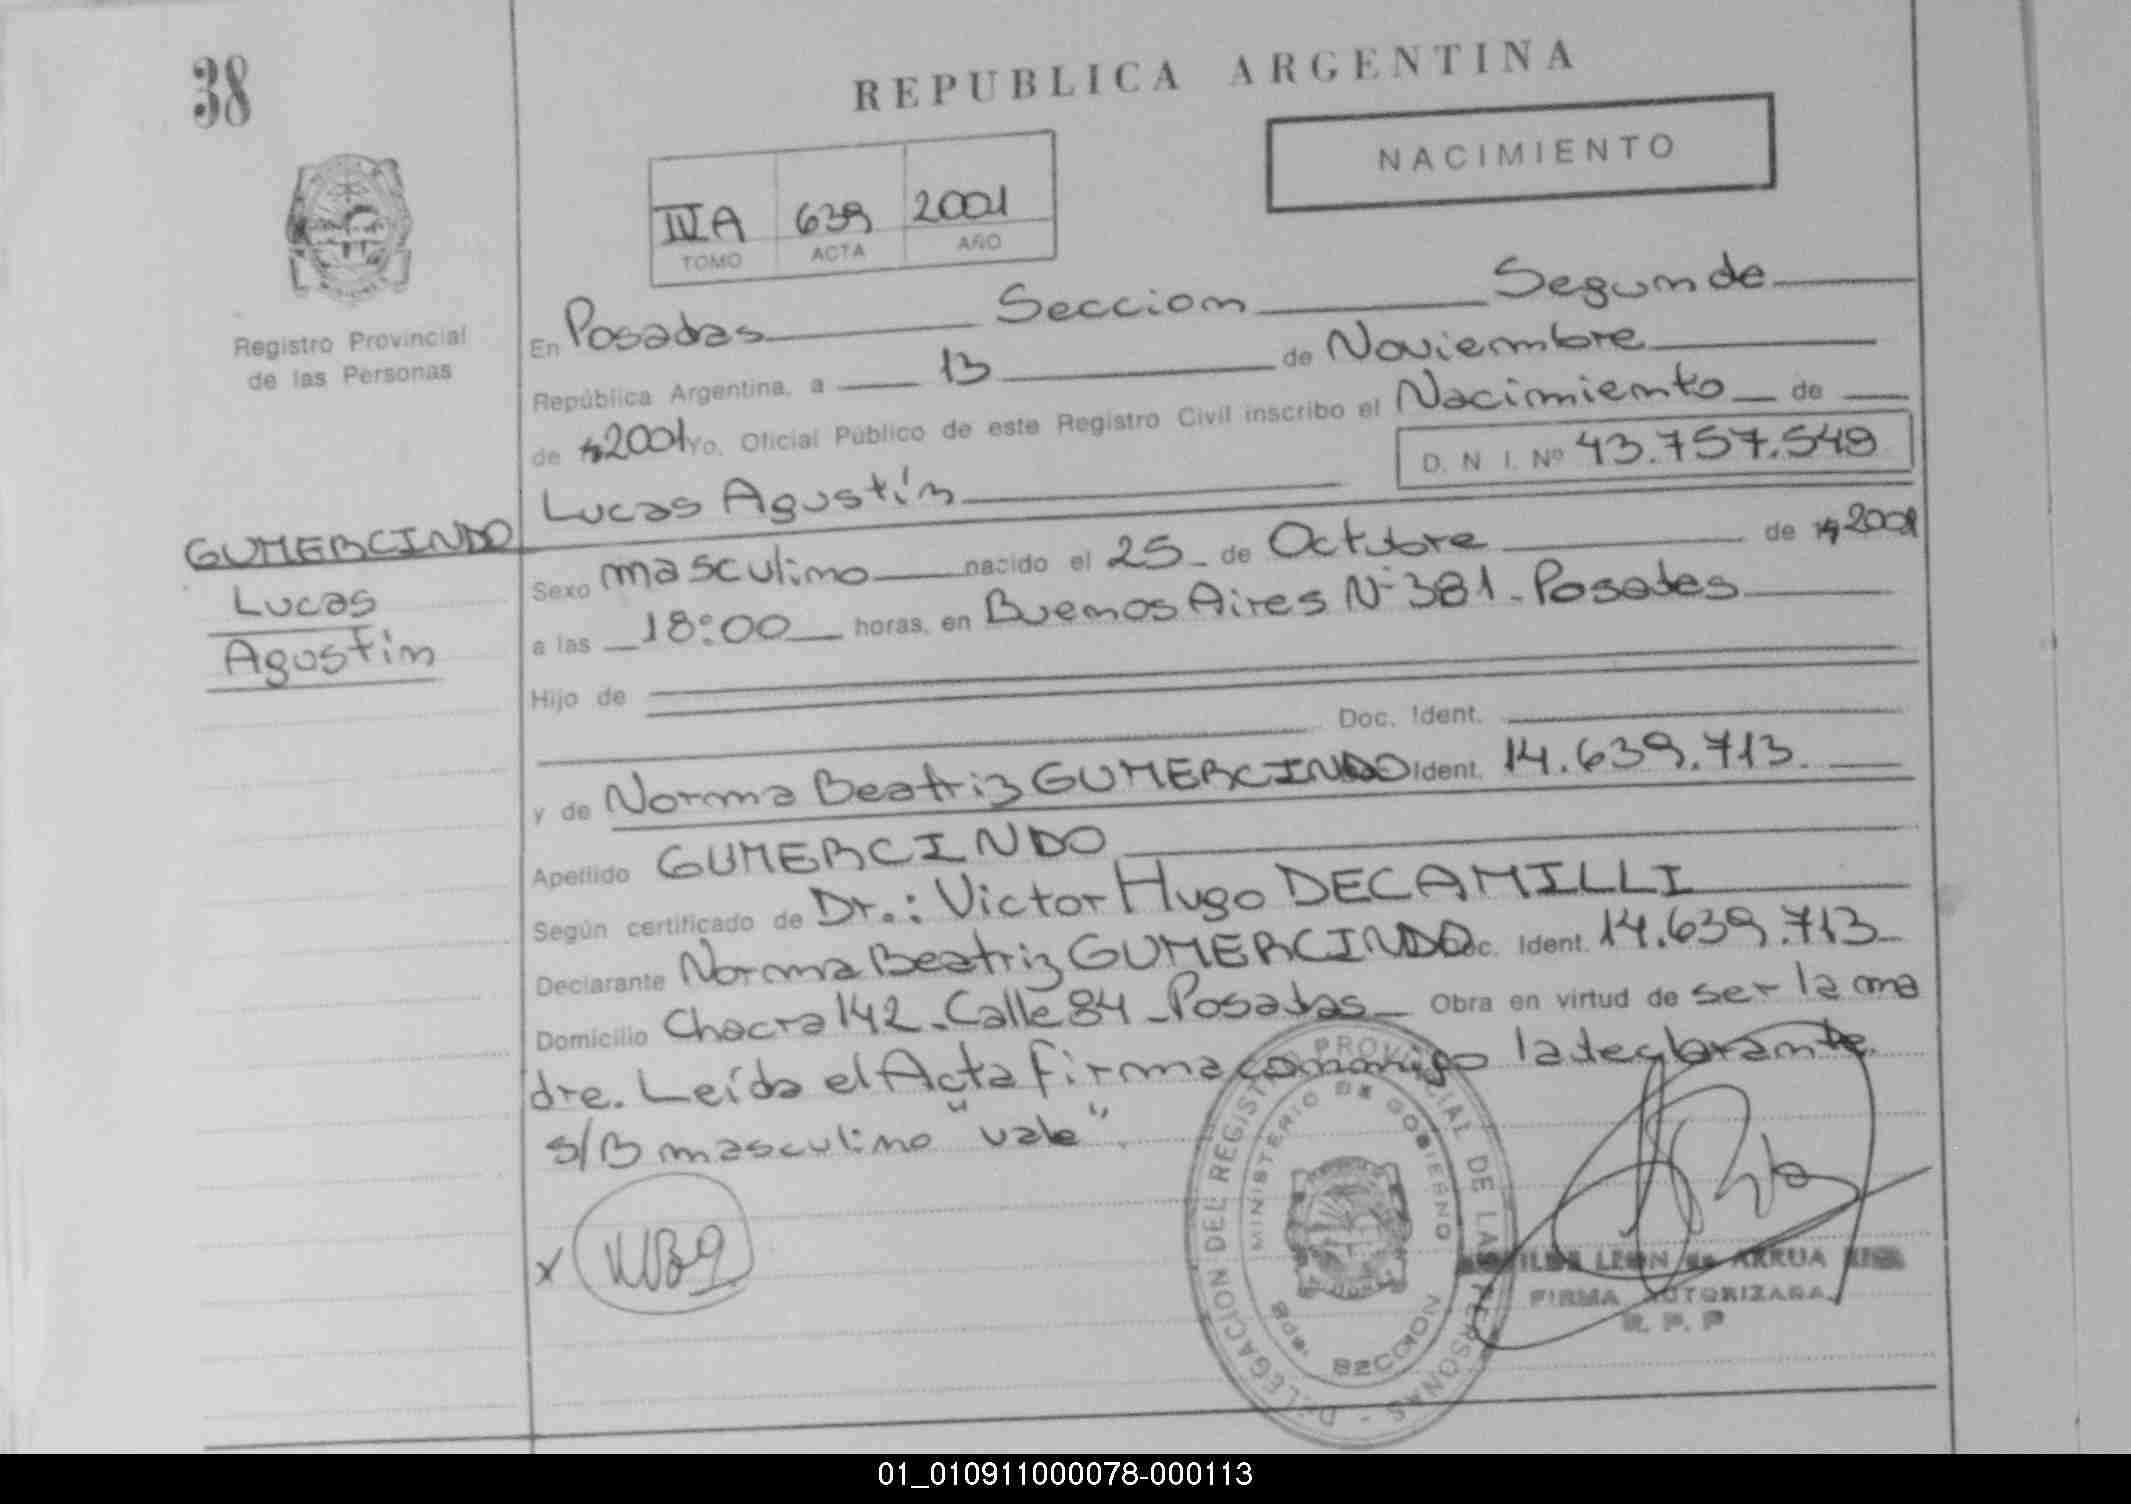 38
REPUBLICA ARGENTINA
NACIMIENTO
IVA 639 2001
TOMO ACTA AÑO
Registro Provincial
de las Personas
En Posadas Seccion Segunda
República Argentina, a 13 de Noviembre
de 2001 Yo, Oficial Público de este Registro Civil inscribo el Nacimiento de
Lucas Agustín D. N. I. Nº 43.757.549
GUMERCINDO
Lucas
Agustín
Sexo masculino nacido el 25 de Octubre de 2001
a las 18:00 horas, en Buenos Aires Nº 381 - Posadas
Hijo de
Doc. Ident.
y de Norma Beatriz GUMERCINDO Ident. 14.639.713.
Apellido GUMERCINDO
Según certificado de Dr.: Victor Hugo DECAMILLI
Declarante Norma Beatriz GUMERCINDO Doc. Ident. 14.639.713
Domicilio Chacra 142 - Calle 84 - Posadas Obra en virtud de ser la ma
dre. Leída el Acta firma conmigo la declarante.
S/B masculino "vale".
x NBG
DELEGACION DEL REGISTRO PROVINCIAL DE LAS PERSONAS
MINISTERIO DE GOBIERNO
SECCION
LEON de ARRUA
FIRMA AUTORIZADA
R. P. P
01_010911000078-000113